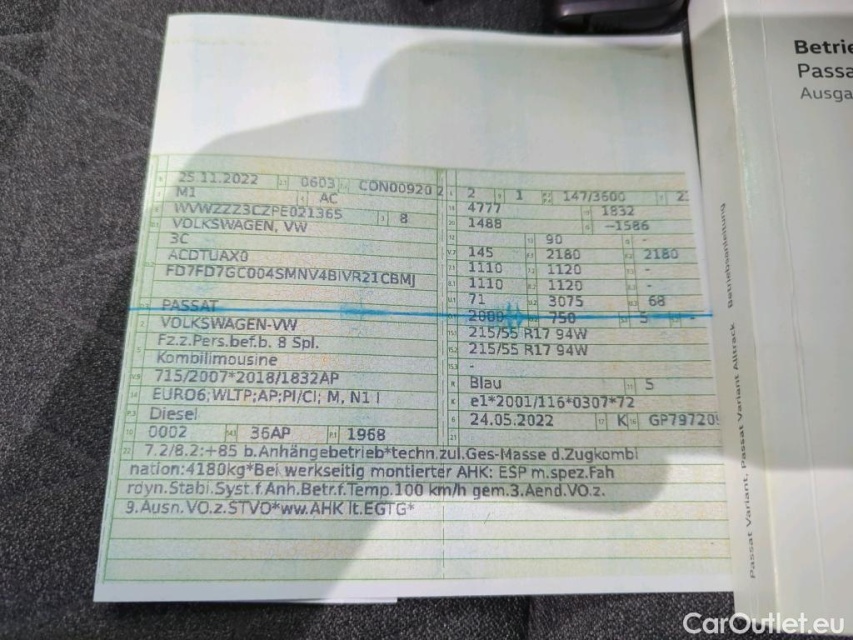 25.11.2022 0603 CON00920 2
M1 AC
WVWZZZ3CZPE021365 8
VOLKSWAGEN, VW
3C
ACDTUAX0
FD7FD7GC004SMNV4BIVR21CBMJ
PASSAT
VOLKSWAGEN-VW
Fz.z.Pers.bef.b. 8 Spl.
Kombilimousine
715/2007*2018/1832AP
EURO6;WLTP;AP;PI/CI; M, N1 I
Diesel
0002 36AP 1968
2 1 147/3600
4777 1832
1488 -1586
90 -
145 2180 2180
1110 1120 -
1110 1120 -
71 3075 68
2000 750 5 -
215/55 R17 94W
215/55 R17 94W
-
Blau 5
e1*2001/116*0307*72
24.05.2022 K GP79720
7.2/8.2:+85 b.Anhängebetrieb*techn.zul.Ges-Masse d.Zugkombi
nation:4180kg*Bei werkseitig montierter AHK: ESP m.spez.Fah
rdyn.Stabi.Syst.f.Anh.Betr.f.Temp.100 km/h gem.3.Aend.VO.z.
9.Ausn.VO.z.STVO*ww.AHK lt.EGTG*
Betrie
Passa
Ausga
Passat Variant, Passat Variant Alltrack Betriebsanleitung
CarOutlet.eu